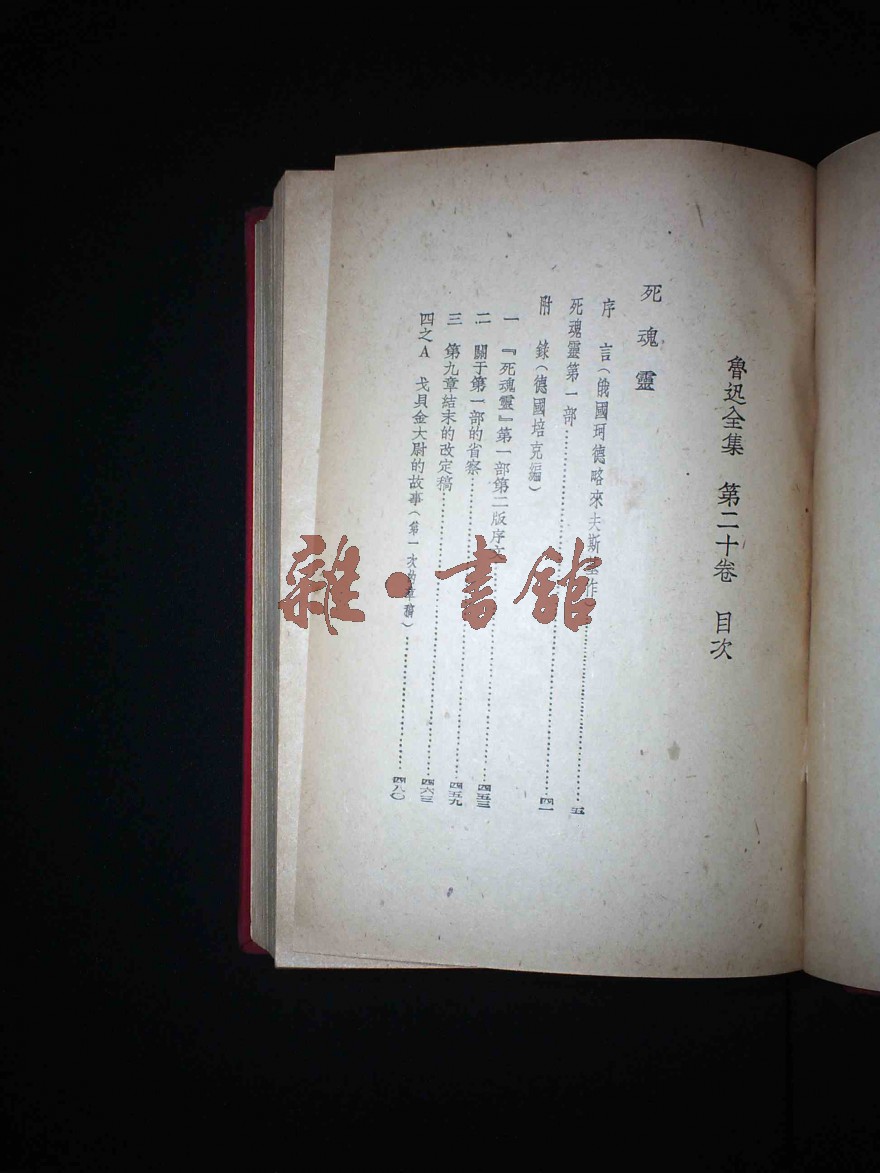 魯迅全集　第二十卷　目次
死魂靈
序言（俄國珂德略來夫斯基作）……五
死魂靈第一部……四一
附錄（德國培克編）
一　『死魂靈』第一部第二版序文……四五三
二　關于第一部的省察……四五九
三　第九章結末的改定稿……四六三
四之A　戈貝金大尉的故事（第一次的草稿）……四八〇
雜·書館